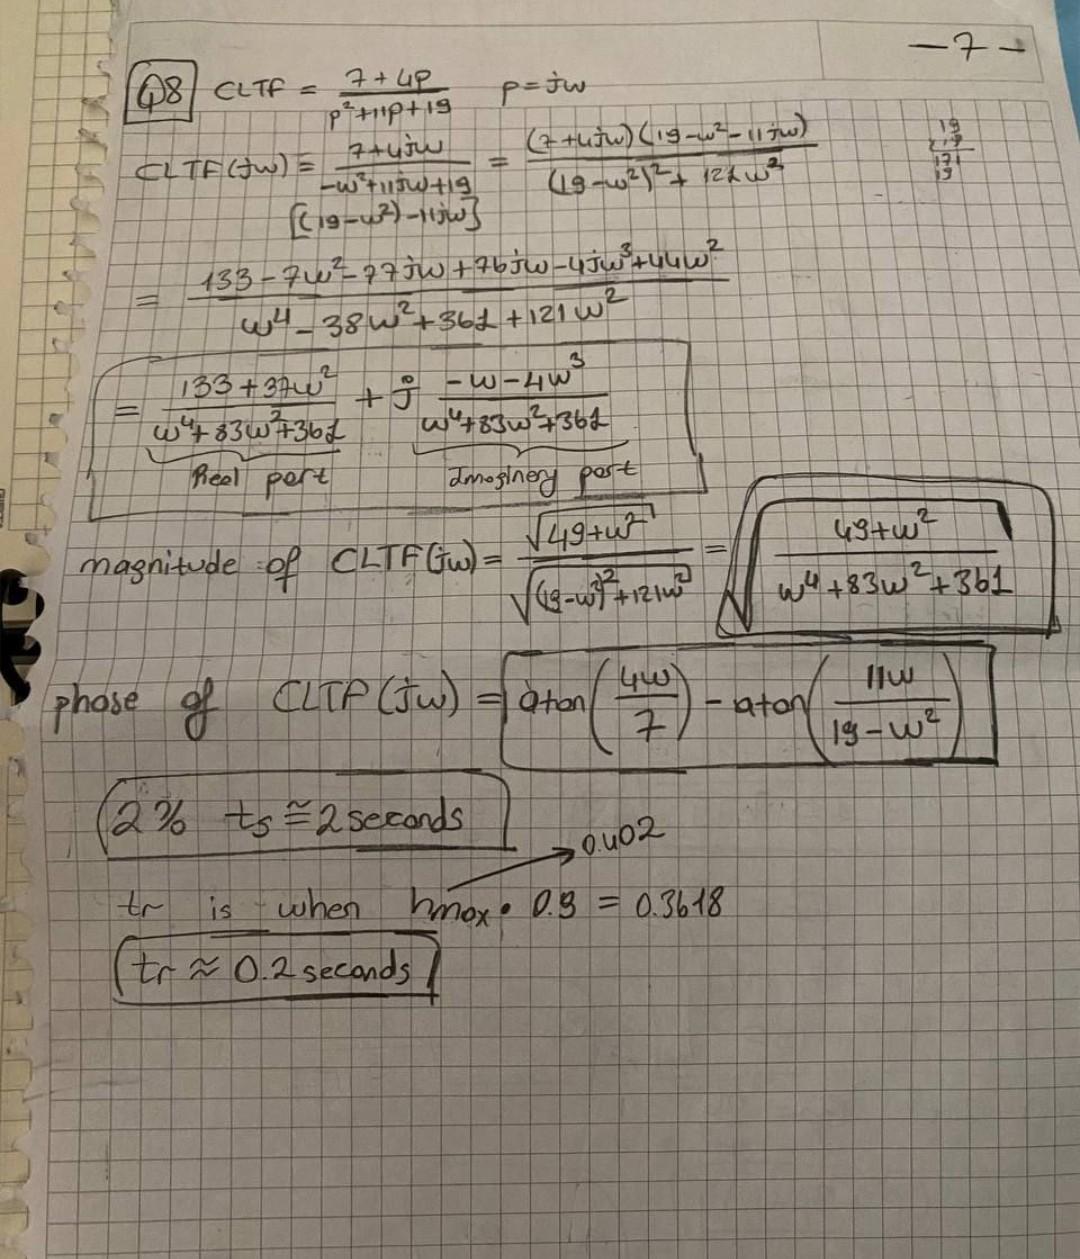 -7-
Q8 CLTF = (7+4p)/(p²+11p+19) p=jw
19
19
171
19
CLTF(jw) = (7+4jw)/(-w²+11jw+19) = (7+4jw)(19-w²-11jw)/((19-w²)²+121w²)
[(19-w²)-11jw]
= (133-7w²-77jw+76jw-4jw³+44w²)/(w⁴-38w²+361+121w²)
= (133+37w²)/(w⁴+83w²+361) + j (-w-4w³)/(w⁴+83w²+361)
Real part Imaginery part
magnitude of CLTF(jw) = √(49+w²)/√((19-w²)²+121w²) = √((49+w²)/(w⁴+83w²+361))
phase of CLTF(jw) = atan(4w/7) - atan(11w/(19-w²))
2% ts ≅ 2 seconds
0.402
tr is when hmax • 0.9 = 0.3618
tr ≈ 0.2 seconds